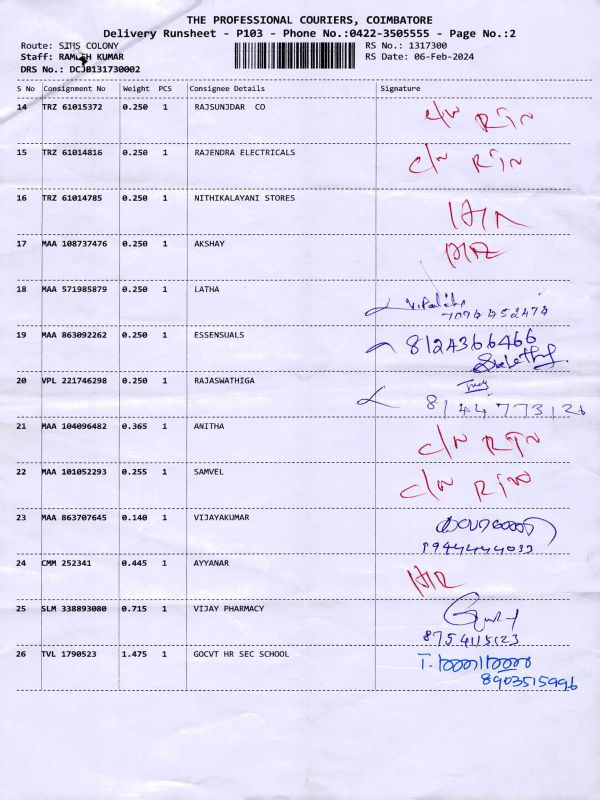 THE PROFESSIONAL COURIERS, COIMBATORE
Delivery Runsheet - P103 - Phone No.:0422-3505555 - Page No.:2
Route: SIHS COLONY RS No.: 1317300
Staff: RAMESH KUMAR RS Date: 06-Feb-2024
DRS No.: DCJB131730002
S No Consignment No Weight PCS Consignee Details Signature
14 TRZ 61015372 0.250 1 RAJSUNJDAR CO C/N RTN
15 TRZ 61014816 0.250 1 RAJENDRA ELECTRICALS C/N RTN
16 TRZ 61014785 0.250 1 NITHIKALAYANI STORES
17 MAA 108737476 0.250 1 AKSHAY
18 MAA 571985879 0.250 1 LATHA
19 MAA 863092262 0.250 1 ESSENSUALS 8124366466
20 VPL 221746298 0.250 1 RAJASWATHIGA
8144773126
21 MAA 104096482 0.365 1 ANITHA C/N RTN
22 MAA 101052293 0.255 1 SAMVEL C/N RTN
23 MAA 863707645 0.140 1 VIJAYAKUMAR
9944444033
24 CMM 252341 0.445 1 AYYANAR
25 SLM 338893080 0.715 1 VIJAY PHARMACY
8754115123
26 TVL 1790523 1.475 1 GOCVT HR SEC SCHOOL
8903515996